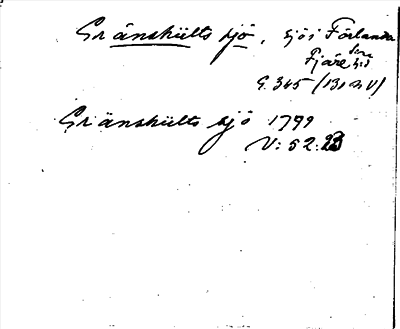 Gränshults sjö, sjö i Förlanda
sn
Fjäre hd
G. 345 (13 n V)
Gränshults sjö 1799
V: 52: 23